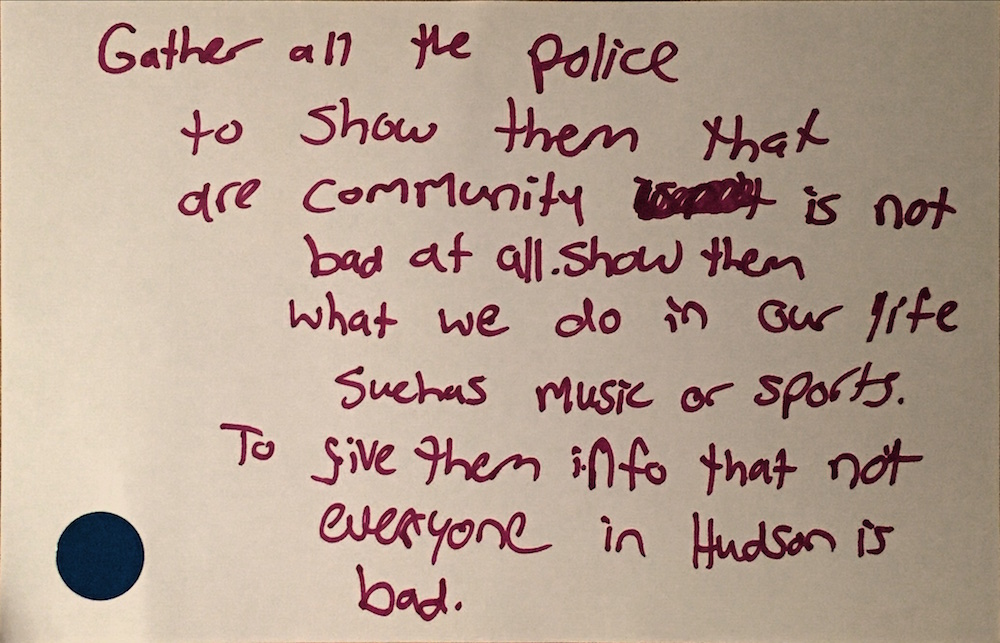 Gather all the police
to show them that
are community is not
bad at all. show them
what we do in our life
suchas music or sports.
To give them info that not
everyone in Hudson is
bad.